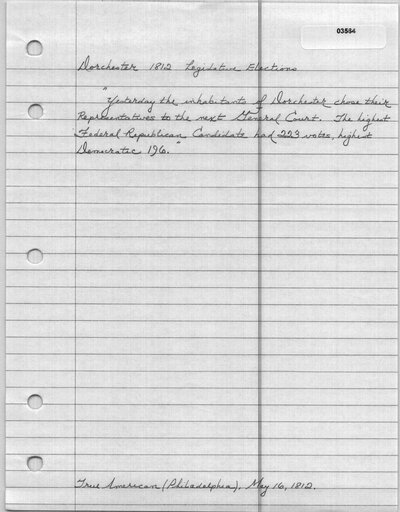 03564
Dorchester 1812 Legislative Elections
"Yesterday the inhabitants of Dorchester chose their
Representatives to the next General Court. The highest
Federal Republican Candidate had 223 votes, highest
Democratic 196."
True American (Philadelphia), May 16, 1812.